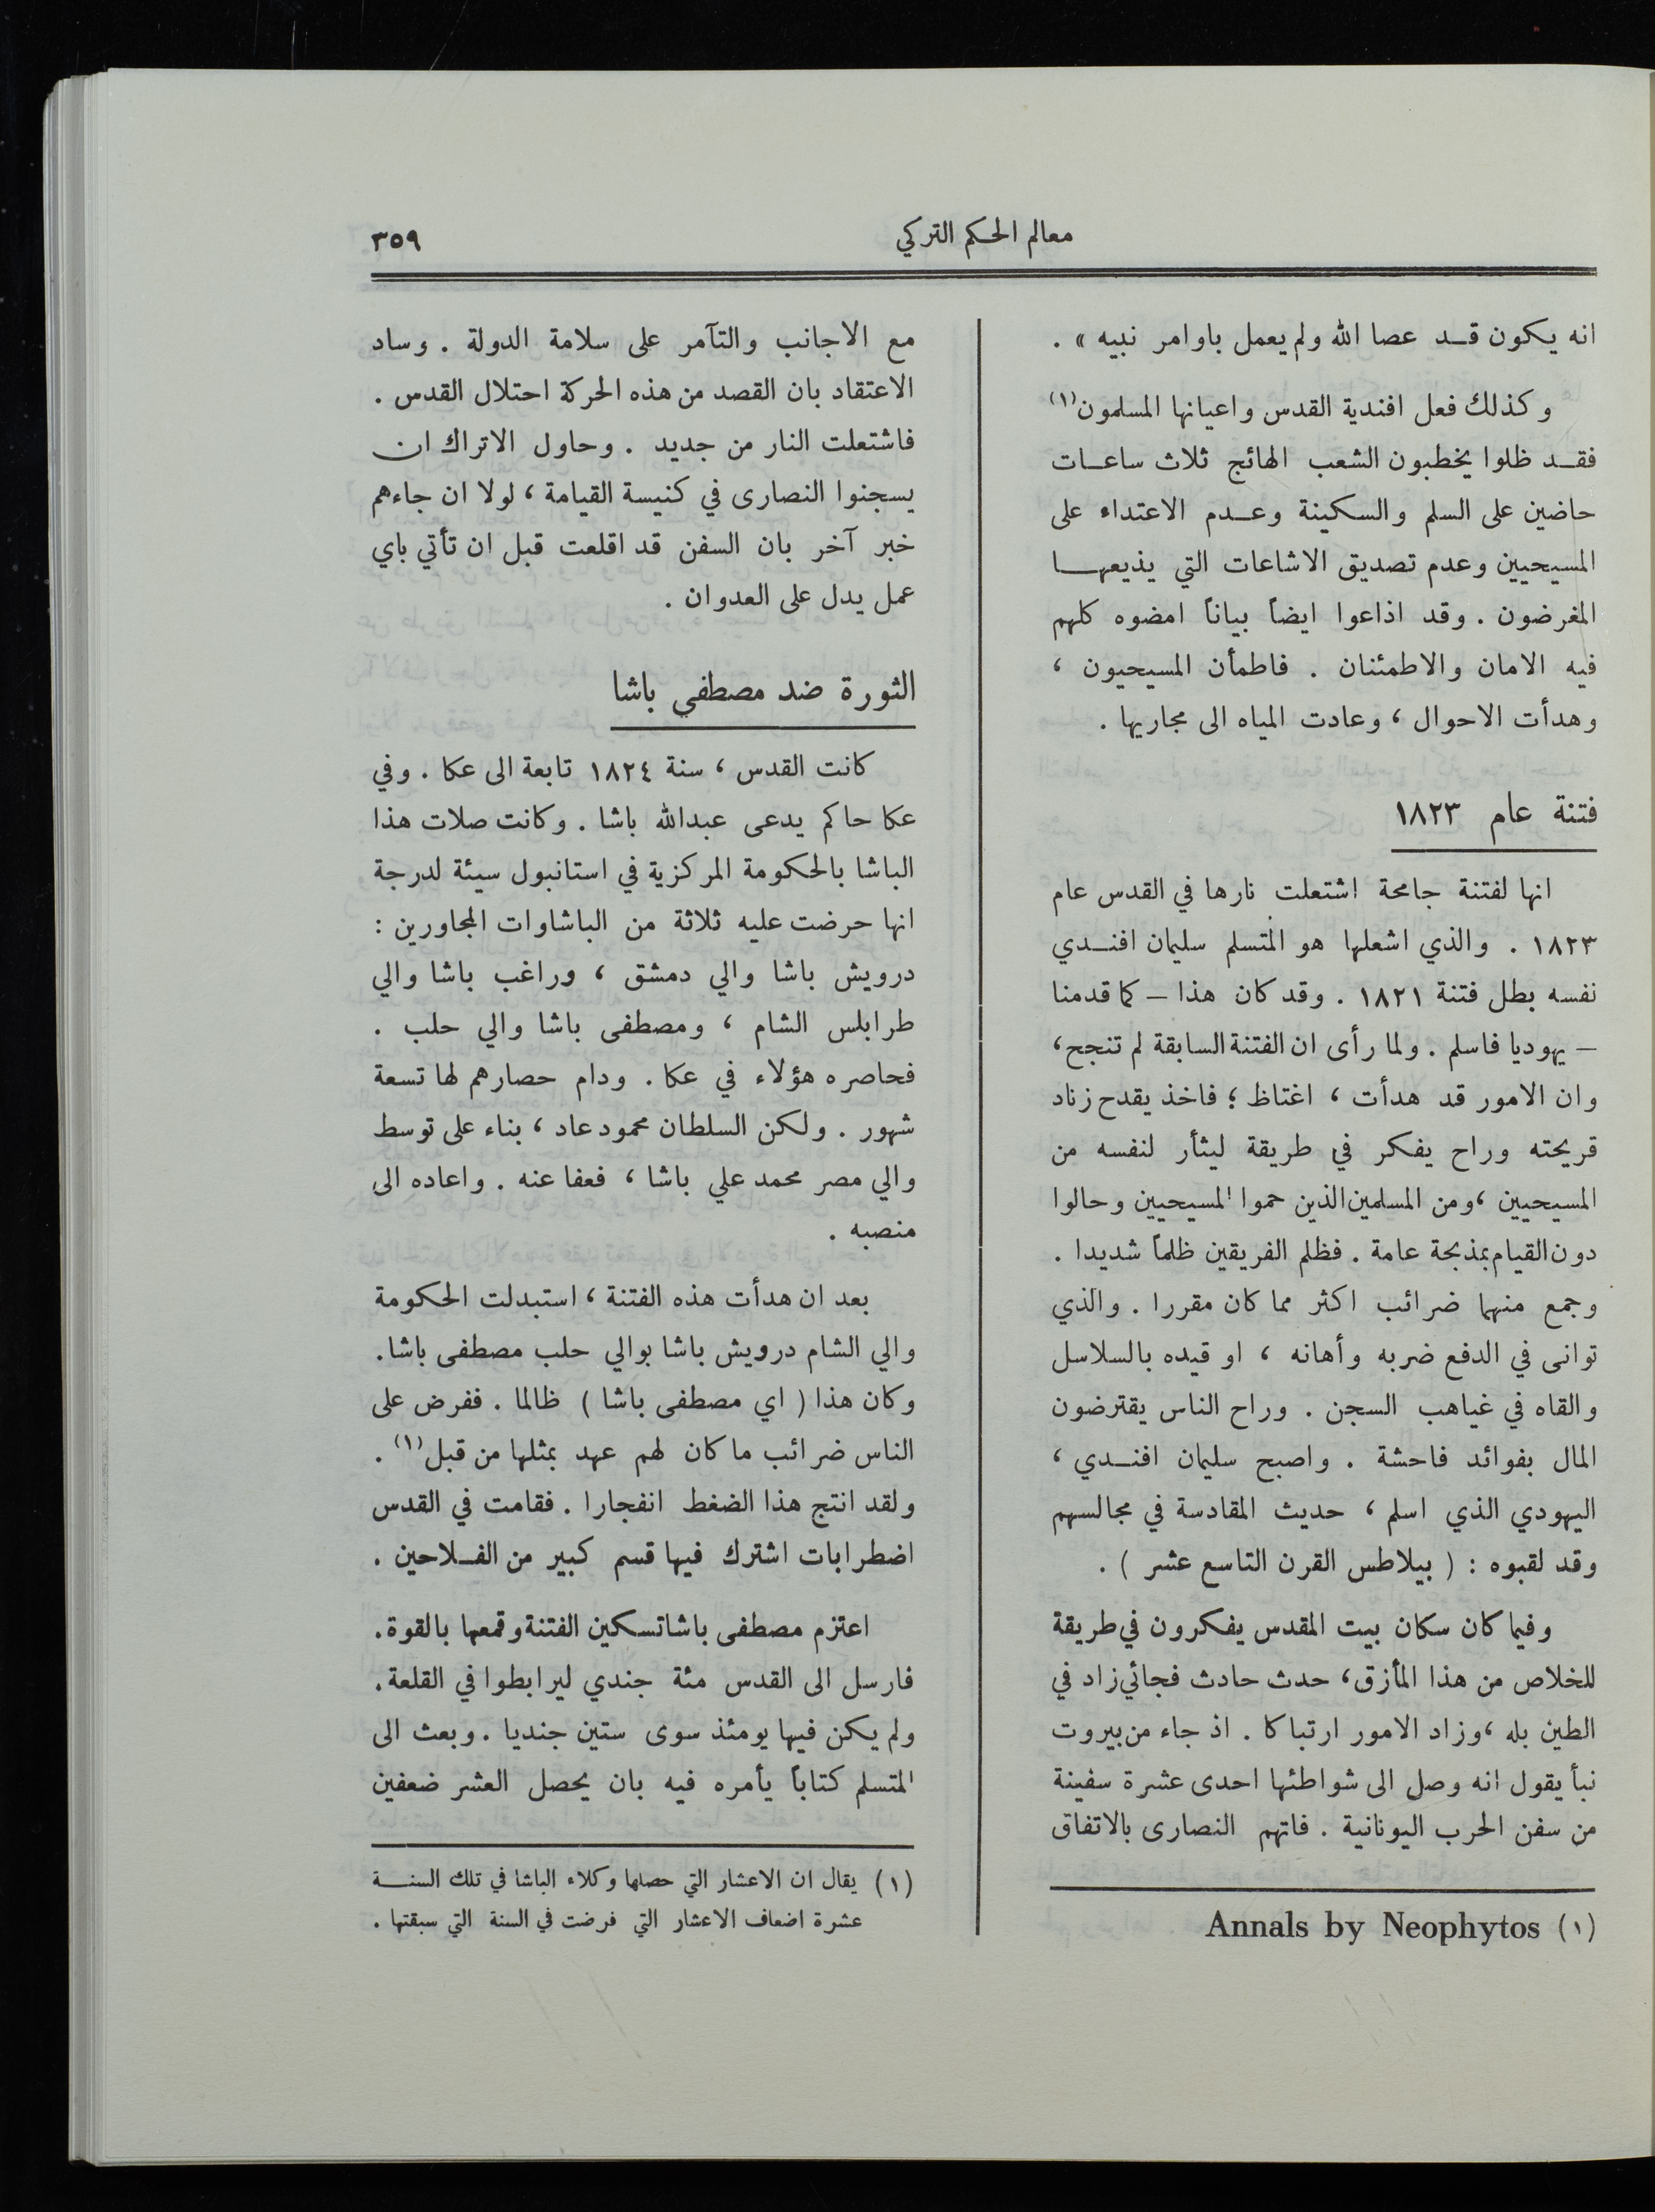 معالم الحكم التركي
٣٥٩
انه يكون قد عصا الله ولم يعمل باوامر نبيه » .
وكذلك فعل افندية القدس واعيانها المسلمون(١)
فقد ظلوا يخطبون الشعب الهائج ثلاث ساعات
حاضين على السلم والسكينة وعدم الاعتداء على
المسيحيين وعدم تصديق الاشاعات التي يذيعها
المغرضون . وقد اذاعوا ايضاً بياناً امضوه كلهم
فيه الامان والاطمئنان . فاطمأن المسيحيون ،
وهدأت الاحوال ، وعادت المياه الى مجاريها .
فتنة عام ١٨٢٣
انها لفتنة جامحة اشتعلت نارها في القدس عام
١٨٢٣ . والذي اشعلها هو المتسلم سليمان افندي
نفسه بطل فتنة ١٨٢١ . وقد كان هذا – كما قدمنا
– يهوديا فاسلم . ولما رأى ان الفتنة السابقة لم تنجح،
وان الامور قد هدأت ، اغتاظ ؛ فاخذ يقدح زناد
قريحته وراح يفكر في طريقة ليثأر لنفسه من
المسيحيين ،ومن المسلمين الذين حموا المسيحيين وحالوا
دون القيام بمذبحة عامة . فظلم الفريقين ظلماً شديدا .
وجمع منهما ضرائب اكثر مما كان مقررا . والذي
توانى في الدفع ضربه وأهانه ، او قيده بالسلاسل
والقاه في غياهب السجن . وراح الناس يقترضون
المال بفوائد فاحشة . واصبح سليمان افندي ،
اليهودي الذي اسلم ، حديث المقادسة في مجالسهم
وقد لقبوه : ( بيلاطس القرن التاسع عشر ) .
وفيما كان سكان بيت المقدس يفكرون في طريقة
للخلاص من هذا المأزق، حدث حادث فجائي زاد في
الطين بله ،وزاد الامور ارتباكا . اذ جاء من بيروت
نبأ يقول انه وصل الى شواطئها احدى عشرة سفينة
من سفن الحرب اليونانية . فاتهم النصارى بالاتفاق
(١) Annals by Neophytos
مع الاجانب والتآمر على سلامة الدولة . وساد
الاعتقاد بان القصد من هذه الحركة احتلال القدس .
فاشتعلت النار من جديد . وحاول الاتراك ان
يسجنوا النصارى في كنيسة القيامة ، لولا ان جاءهم
خبر آخر بان السفن قد اقلعت قبل ان تأتي باي
عمل يدل على العدوان .
الثورة ضد مصطفى باشا
كانت القدس ، سنة ١٨٢٤ تابعة الى عكا . وفي
عكا حاكم يدعى عبدالله باشا . وكانت صلات هذا
الباشا بالحكومة المركزية في استانبول سيئة لدرجة
انها حرضت عليه ثلاثة من الباشاوات المجاورين :
درويش باشا والي دمشق ، وراغب باشا والي
طرابلس الشام ، ومصطفى باشا والي حلب .
فحاصره هؤلاء في عكا. ودام حصارهم لها تسعة
شهور . ولكن السلطان محمود عاد ، بناء على توسط
والي مصر محمد علي باشا ، فعفا عنه . واعاده الى
منصبه .
بعد ان هدأت هذه الفتنة ، استبدلت الحكومة
والي الشام درويش باشا بوالي حلب مصطفى باشا.
وكان هذا ( اي مصطفى باشا ) ظالما . ففرض على
الناس ضرائب ما كان لهم عهد بمثلها من قبل(١) .
ولقد انتج هذا الضغط انفجارا . فقامت في القدس
اضطرابات اشترك فيها قسم كبير من الفلاحين .
اعتزم مصطفى باشا تسكين الفتنة وقمعها بالقوة.
فارسل الى القدس مئة جندي ليرابطوا في القلعة.
ولم يكن فيها يومئذ سوى ستين جنديا . وبعث الى
المتسلم كتاباً يأمره فيه بان يحصل العشر ضعفين
(١) يقال ان الاعشار التي حصلها وكلاء الباشا في تلك السنة
عشرة اضعاف الاعشار التي فرضت في السنة التي سبقتها .